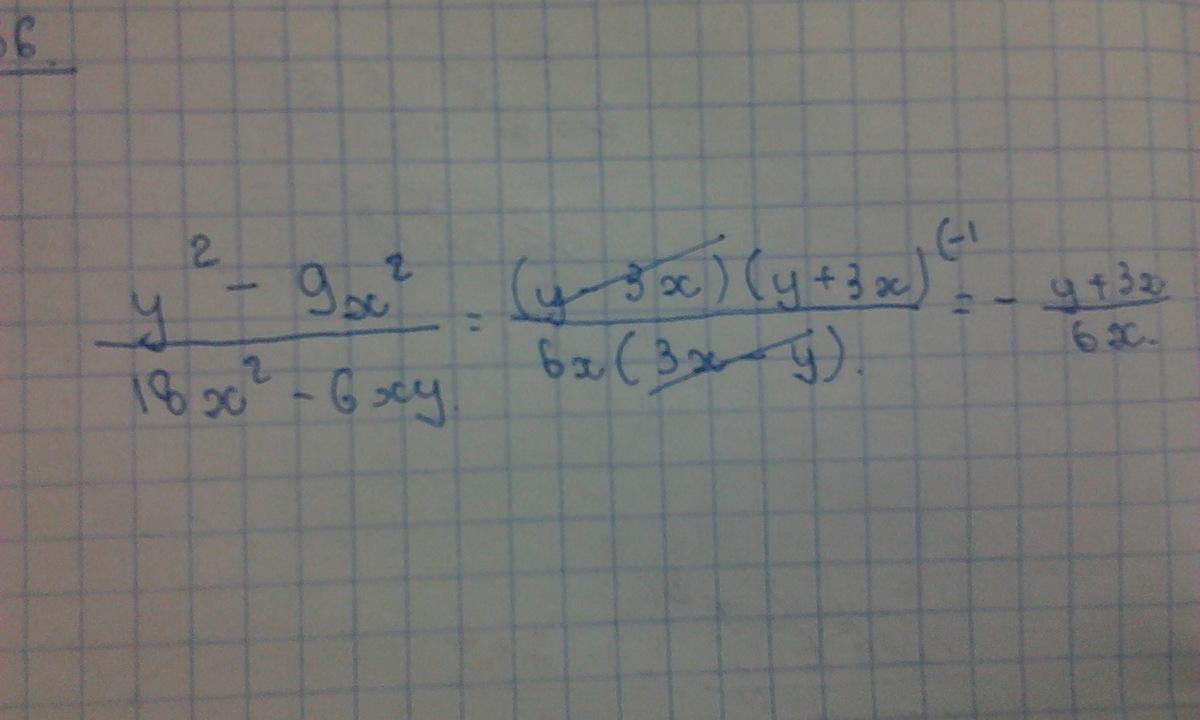 66.
y² - 9x² / 18x² - 6xy. = (y - 3x)(y + 3x) (-1 / 6x(3x - y). = - y + 3x / 6x.